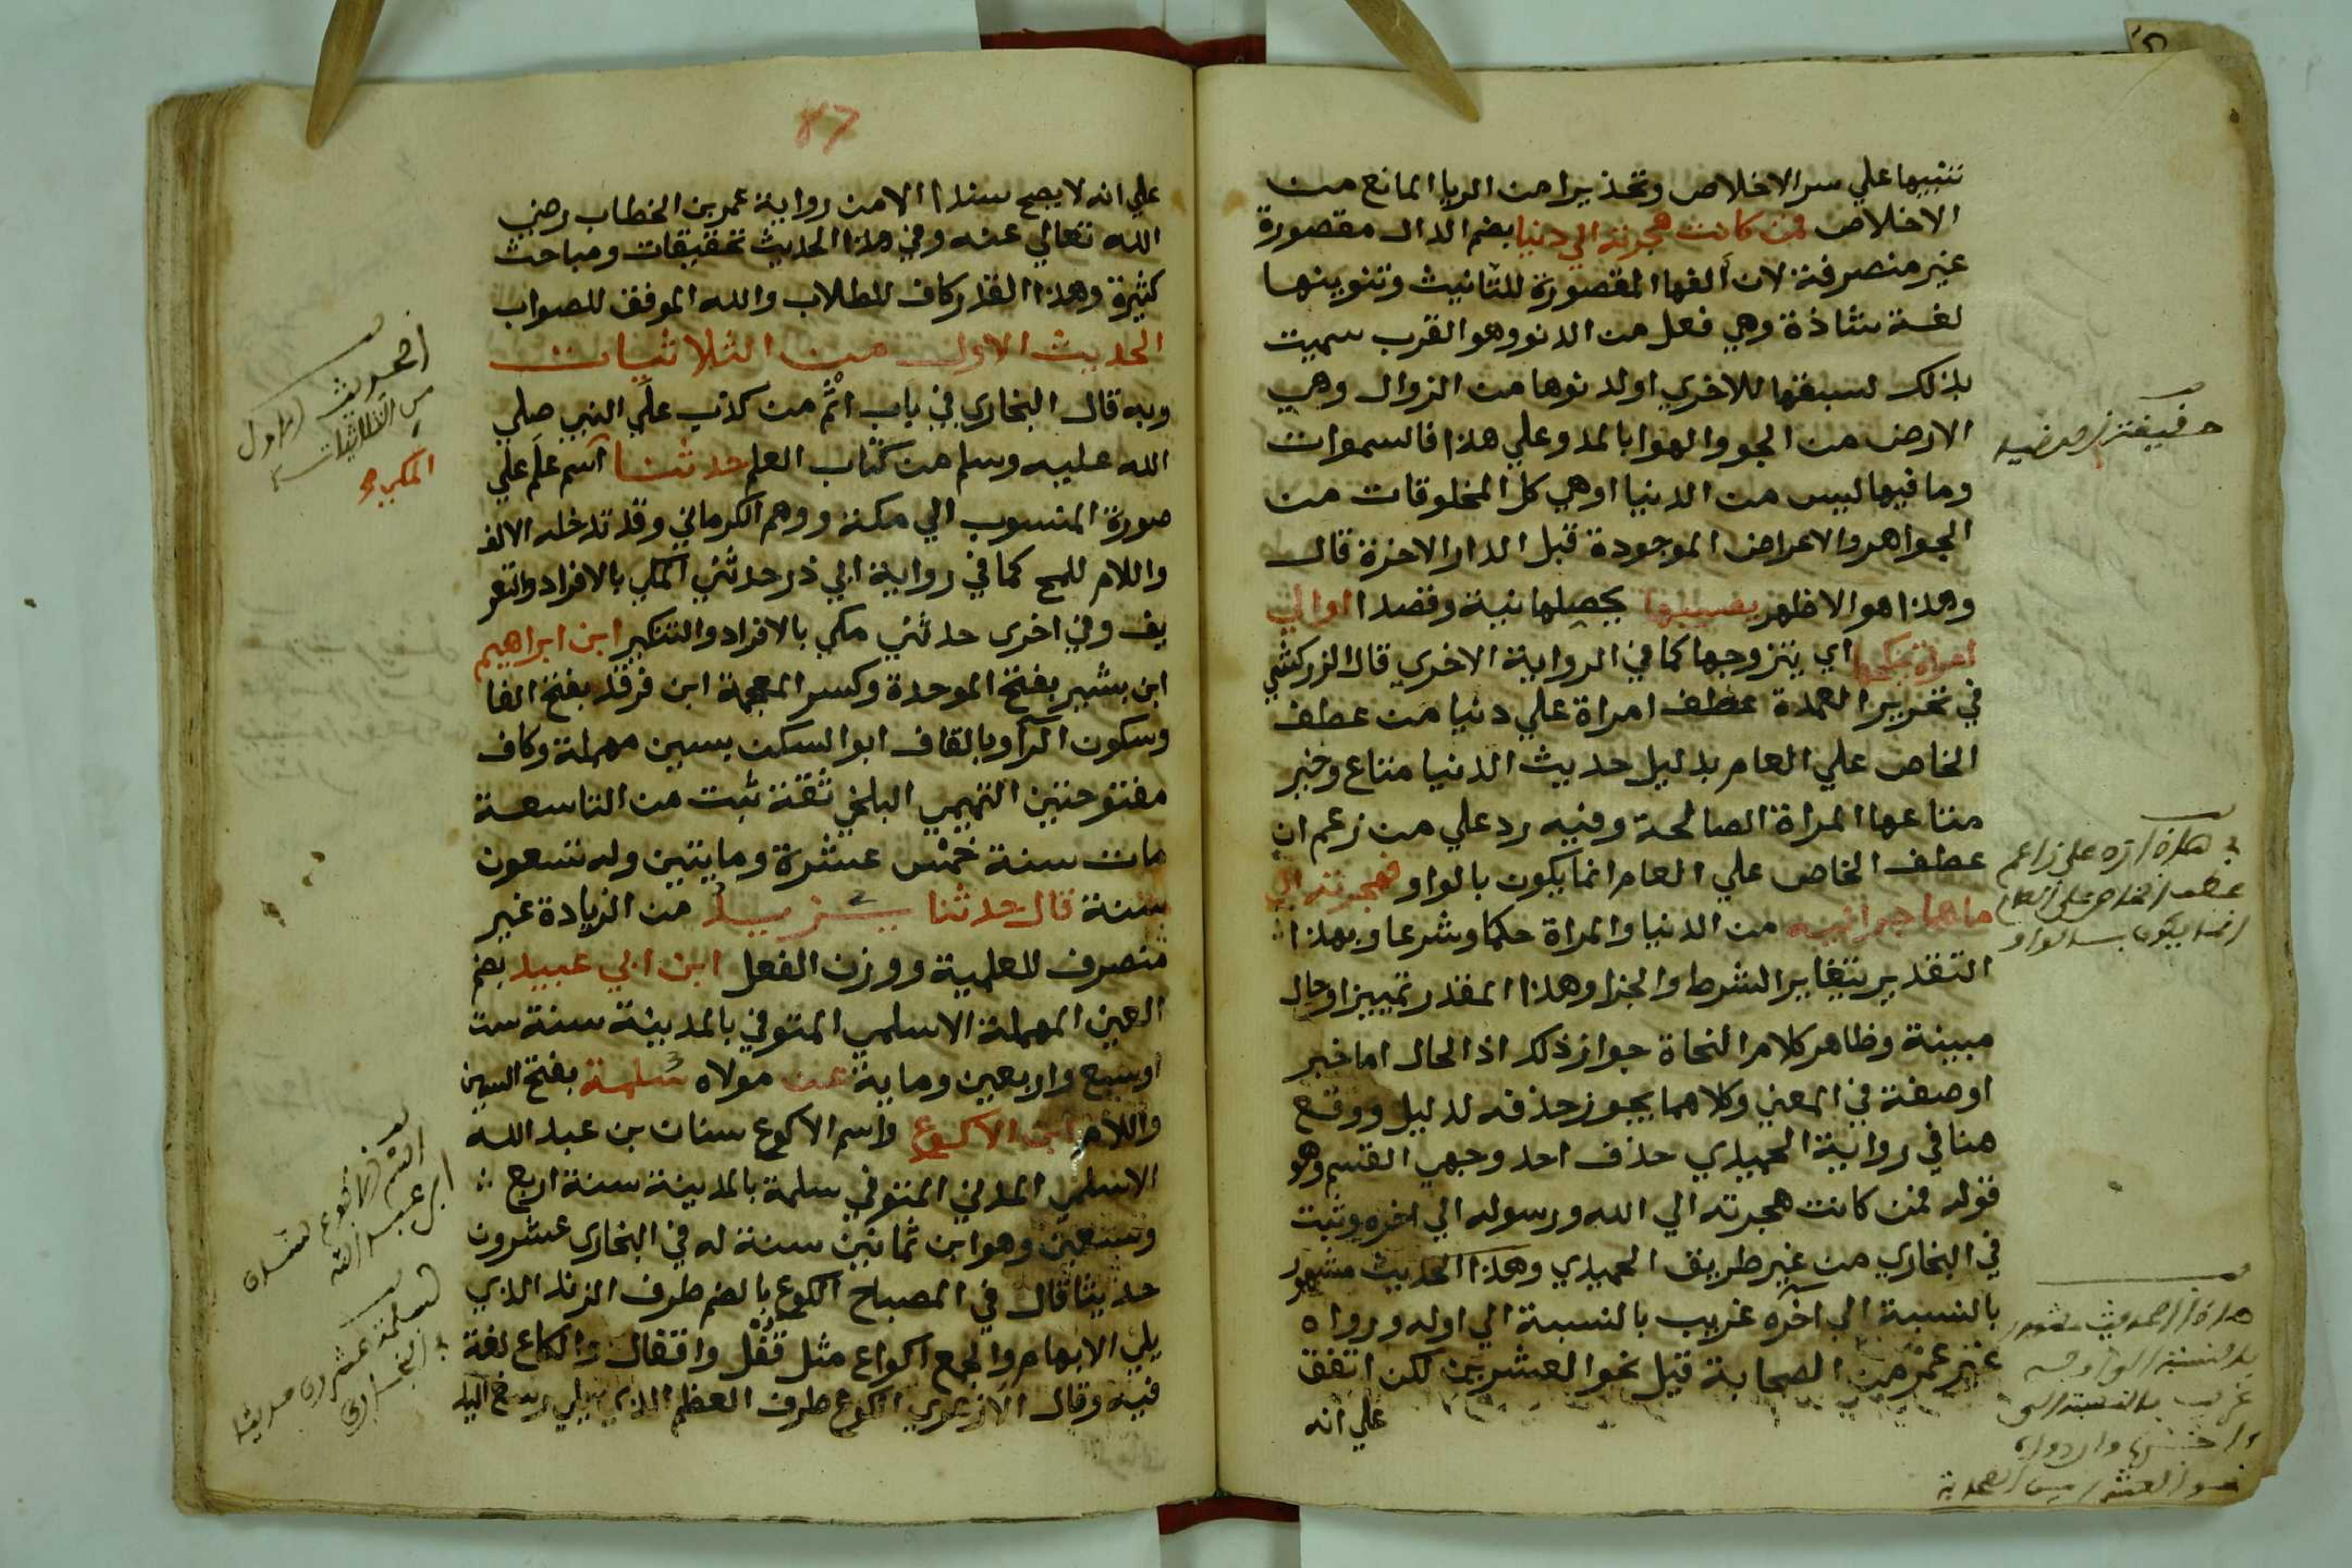 تنبيها علي سر الاخلاص وتحذيرا من الريا المانع من
الاخلاص فمن كانت هجرته الي دنيا بضم الدال مقصورة
غير منصرفة لان ألفها المقصورة للتأنيث وتنوينها
لغة شاذة وهي فعل من الدنو وهو القرب سميت
بذلك لسبقها للاخري او لدنوها من الزوال وهي
الارض من الجو والهوا بالمد وعلي هذا فالسموات
وما فيها ليس من الدنيا او هي كل المخلوقات من
الجواهر والاعراض الموجودة قبل الدار الاخرة قال
وهذا هو الاظهر يصيبها يحصلها نية وقصدا او الي
امراة ينكحها اي يتزوجها كما في الرواية الاخري قال الزركشي
في تحرير العمدة عطف امراة علي دنيا من عطف
الخاص علي العام بدليل حديث الدنيا متاع وخير
متاعها المراة الصالحة وفيه رد علي من زعم ان
عطف الخاص علي العام انما يكون بالواو فهجرته الي
ما هاجر اليه من الدنيا والمراة حكما وشرعا وبهذا
التقدير يتغاير الشرط والجزا وهذا المقدر تمييز او حال
مبينة وظاهر كلام النحاة جواز ذلك اذ الحال اما خبر
او صفة في المعني وكلاهما يجوز حذفه لدليل ووقع
هنا في رواية الحميدي حذف احد وجهي القسم وهو
قوله فمن كانت هجرته الي الله ورسوله الي اخره وثبت
في البخاري من غير طريق الحميدي وهذا الحديث مشهور
بالنسبة الي اخره غريب بالنسبة الي اوله ورواه
غير عمر من الصحابة قيل نحو العشرين لكن اتفق
علي انه
هذا رد علي زاعم
عطف الخاص علي العام
انما يكون بالواو
هذا الحديث مشهور
87
علي انه لا يصح سندا الا من رواية عمر بن الخطاب رضي
الله تعالي عنه وفي هذا الحديث تحقيقات ومباحث
كثيرة وهذا القدر كاف للطلاب والله الموفق للصواب
الحديث الاول من الثلاثيات
وبه قال البخاري في باب اثم من كذب علي النبي صلي
الله عليه وسلم من كتاب العلم حدثنا اسم علم علي
صورة المنسوب الي مكة ووهم الكرماني وقد تدخله الالف
واللام للمح كما في رواية ابي ذر حدثني المكي بالافراد والتعر
يف وفي اخري حدثني مكي بالافراد والتنكير ابن ابراهيم
ابن بشير بفتح الموحدة وكسر المعجمة ابن فرقد بفتح الفا
وسكون الرا وبالقاف ابو السكن بسين مهملة وكاف
مفتوحتين التميمي البلخي ثقة ثبت من التاسعة
مات سنة خمس عشرة ومايتين وله تسعون
سنة قال حدثنا يزيد من الزيادة غير
منصرف للعلمية ووزن الفعل ابن ابي عبيد بضم
العين المهملة الاسلمي المتوفي بالمدينة سنة ست
او سبع واربعين وماية عن مولاه سلمة بفتح السين
واللام ابن الاكوع واسم الاكوع سنان بن عبد الله
الاسلمي المدني المتوفي سلمة بالمدينة سنة اربع
وسبعين وهو ابن ثمانين سنة له في البخاري عشرون
حديثا قال في المصباح الكوع بالضم طرف الزند الذي
يلي الابهام والجمع اكواع مثل قفل واقفال والكاع لغة
فيه وقال الازهري الكوع طرف العظم الذي يلي رسغ اليد
الحديث الاول
من الثلاثيات
المكي
اسم الاكوع سنان
ابن عبد الله
لسلمة عشرون حديثا
في البخاري